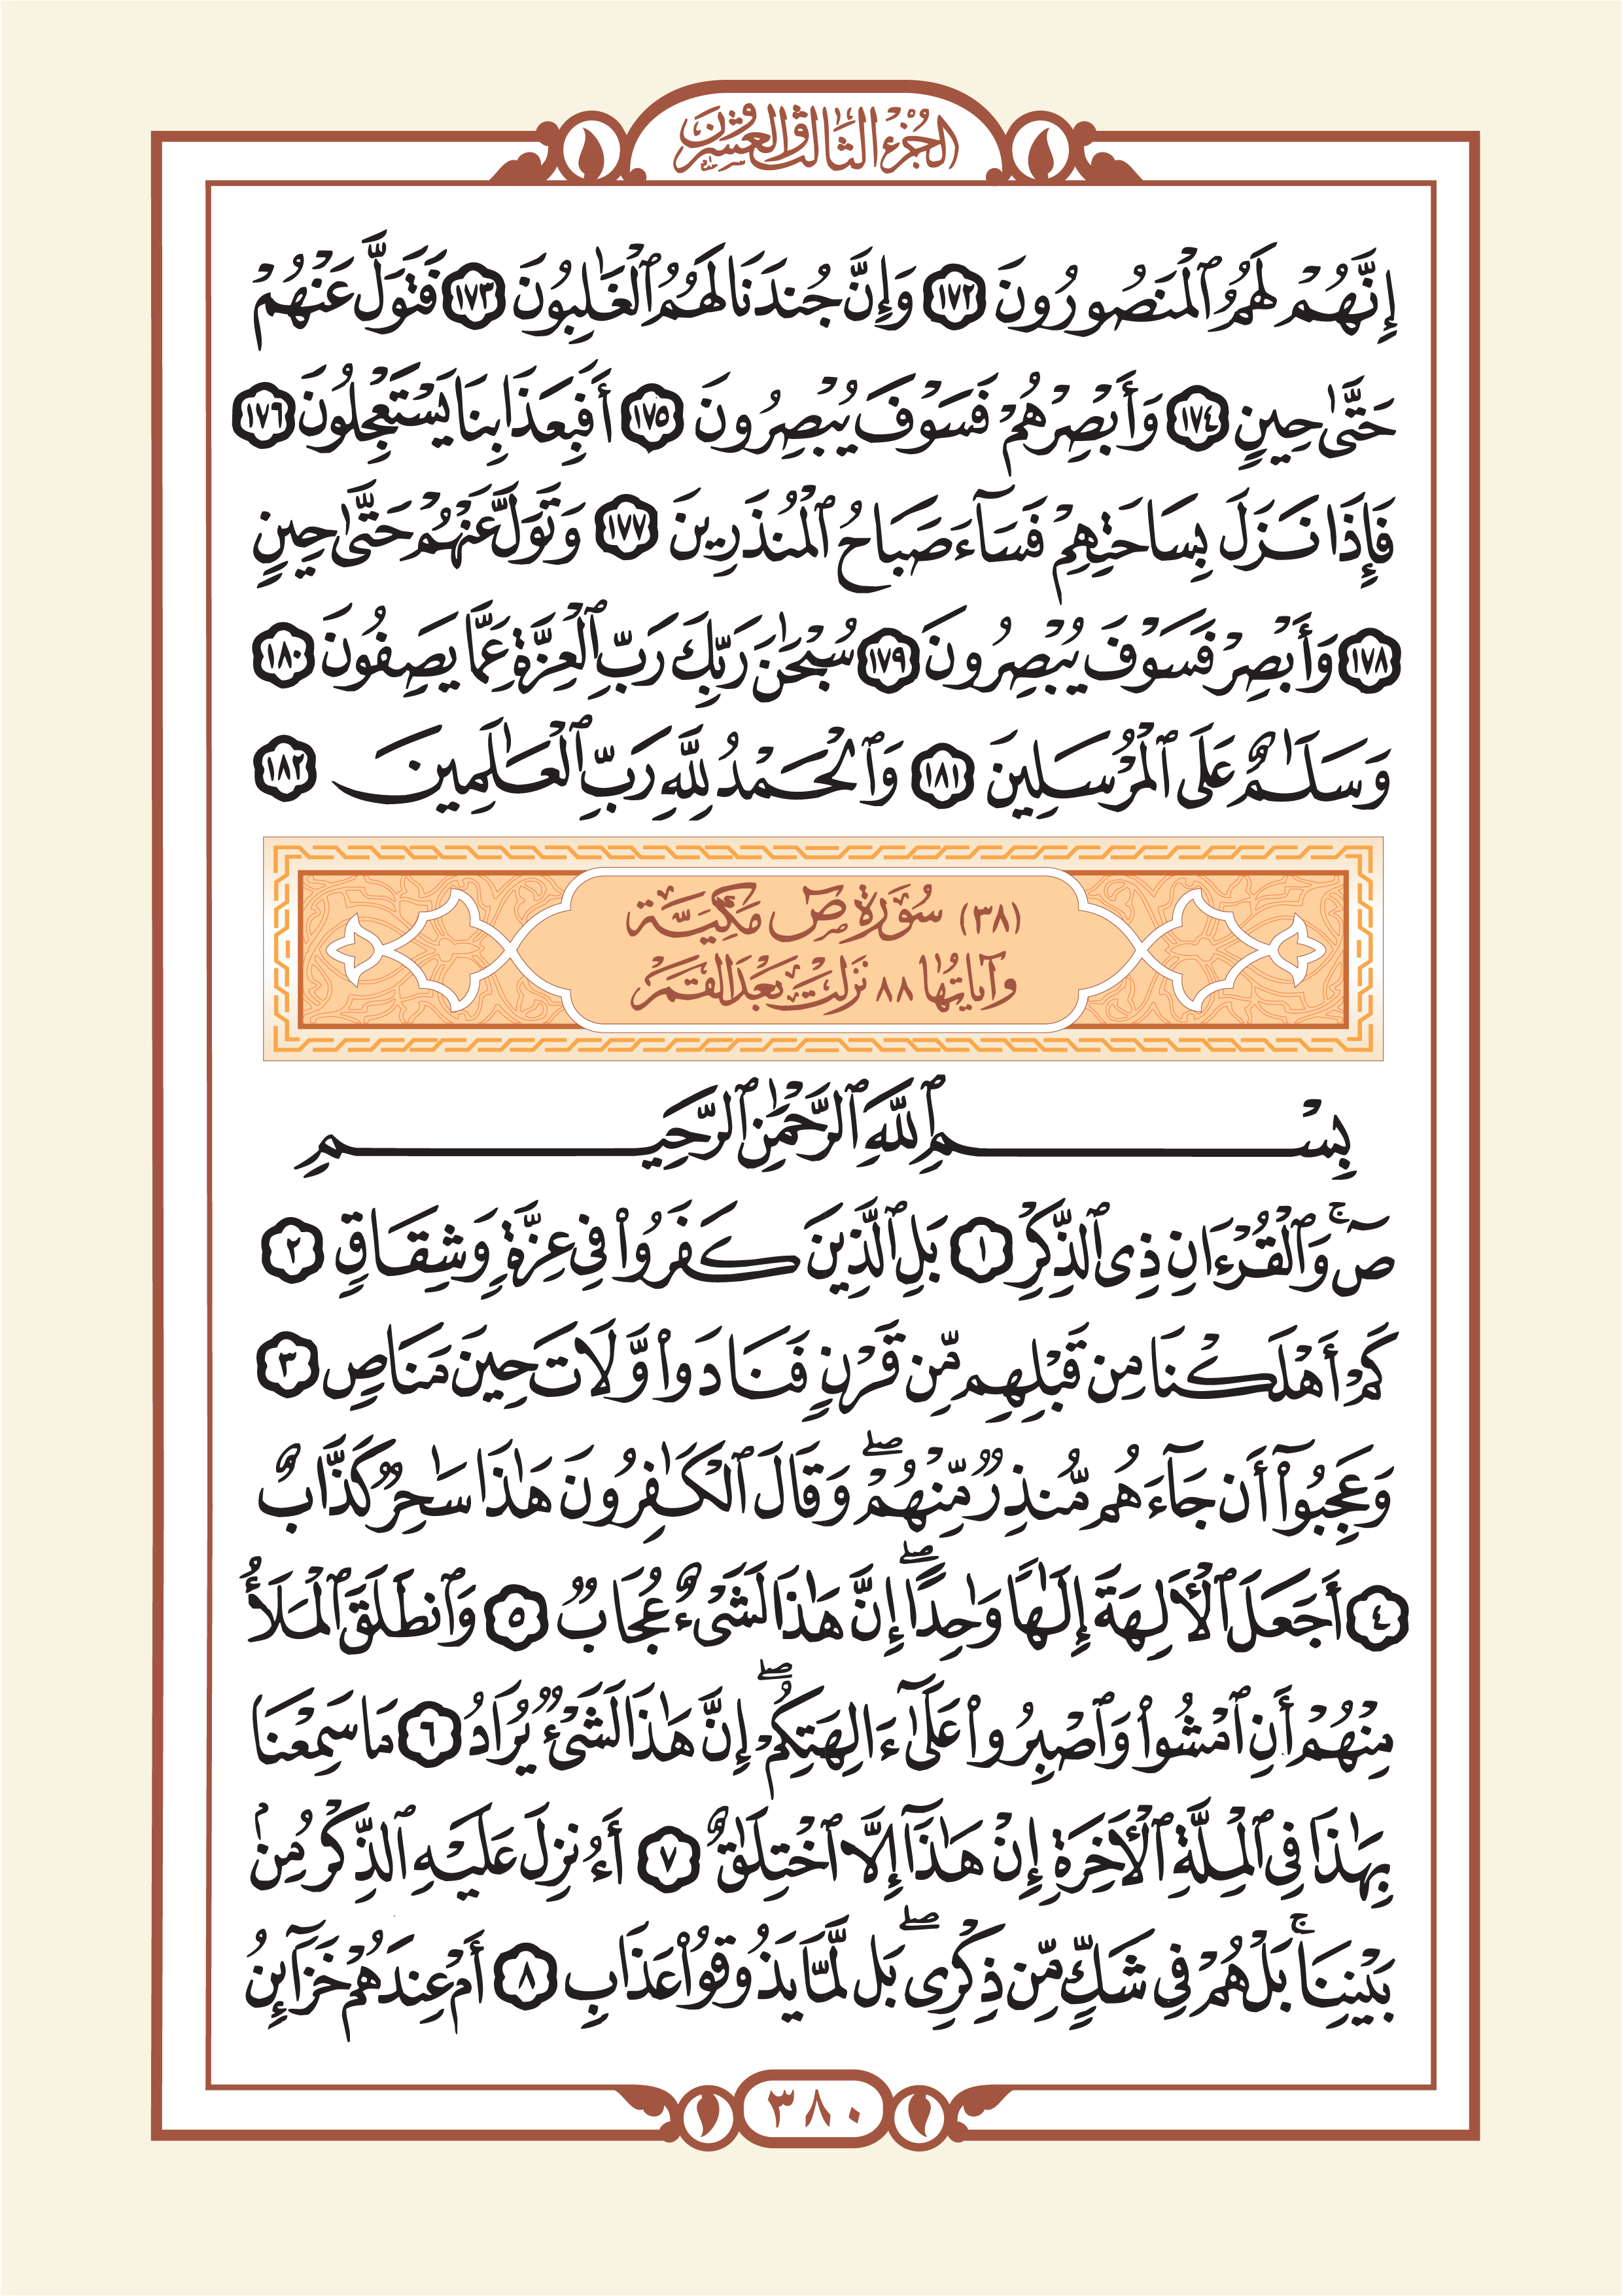 الجزء الثالث والعشرون
إِنَّهُمْ لَهُمُ ٱلْمَنصُورُونَ ١٧٢ وَإِنَّ جُندَنَا لَهُمُ ٱلْغَٰلِبُونَ ١٧٣ فَتَوَلَّ عَنْهُمْ
حَتَّىٰ حِينٍ ١٧٤ وَأَبْصِرْهُمْ فَسَوْفَ يُبْصِرُونَ ١٧٥ أَفَبِعَذَابِنَا يَسْتَعْجِلُونَ ١٧٦
فَإِذَا نَزَلَ بِسَاحَتِهِمْ فَسَآءَ صَبَاحُ ٱلْمُنذَرِينَ ١٧٧ وَتَوَلَّ عَنْهُمْ حَتَّىٰ حِينٍ
١٧٨ وَأَبْصِرْ فَسَوْفَ يُبْصِرُونَ ١٧٩ سُبْحَٰنَ رَبِّكَ رَبِّ ٱلْعِزَّةِ عَمَّا يَصِفُونَ ١٨٠
وَسَلَٰمٌ عَلَى ٱلْمُرْسَلِينَ ١٨١ وَٱلْحَمْدُ لِلَّهِ رَبِّ ٱلْعَٰلَمِينَ ١٨٢
(٣٨) سُورَة صٓ مَكِّيَّة
وآياتها ٨٨ نزلت بعد القمر
بِسْمِ ٱللَّهِ ٱلرَّحْمَٰنِ ٱلرَّحِيمِ
صٓ ۚ وَٱلْقُرْءَانِ ذِى ٱلذِّكْرِ ١ بَلِ ٱلَّذِينَ كَفَرُوا۟ فِى عِزَّةٍ وَشِقَاقٍ ٢
كَمْ أَهْلَكْنَا مِن قَبْلِهِم مِّن قَرْنٍ فَنَادَوا۟ وَّلَاتَ حِينَ مَنَاصٍ ٣
وَعَجِبُوٓا۟ أَن جَآءَهُم مُّنذِرٌ مِّنْهُمْ ۖ وَقَالَ ٱلْكَٰفِرُونَ هَٰذَا سَٰحِرٌ كَذَّابٌ
٤ أَجَعَلَ ٱلْأَلِهَةَ إِلَٰهًا وَٰحِدًا ۖ إِنَّ هَٰذَا لَشَىْءٌ عُجَابٌ ٥ وَٱنطَلَقَ ٱلْمَلَأُ
مِنْهُمْ أَنِ ٱمْشُوا۟ وَٱصْبِرُوا۟ عَلَىٰٓ ءَالِهَتِكُمْ ۖ إِنَّ هَٰذَا لَشَىْءٌ يُرَادُ ٦ مَا سَمِعْنَا
بِهَٰذَا فِى ٱلْمِلَّةِ ٱلْأَخِرَةِ إِنْ هَٰذَآ إِلَّا ٱخْتِلَٰقٌ ٧ أَءُنزِلَ عَلَيْهِ ٱلذِّكْرُ مِنۢ
بَيْنِنَا ۚ بَلْ هُمْ فِى شَكٍّ مِّن ذِكْرِى ۖ بَل لَّمَّا يَذُوقُوا۟ عَذَابِ ٨ أَمْ عِندَهُمْ خَزَآئِنُ
٣٨٠